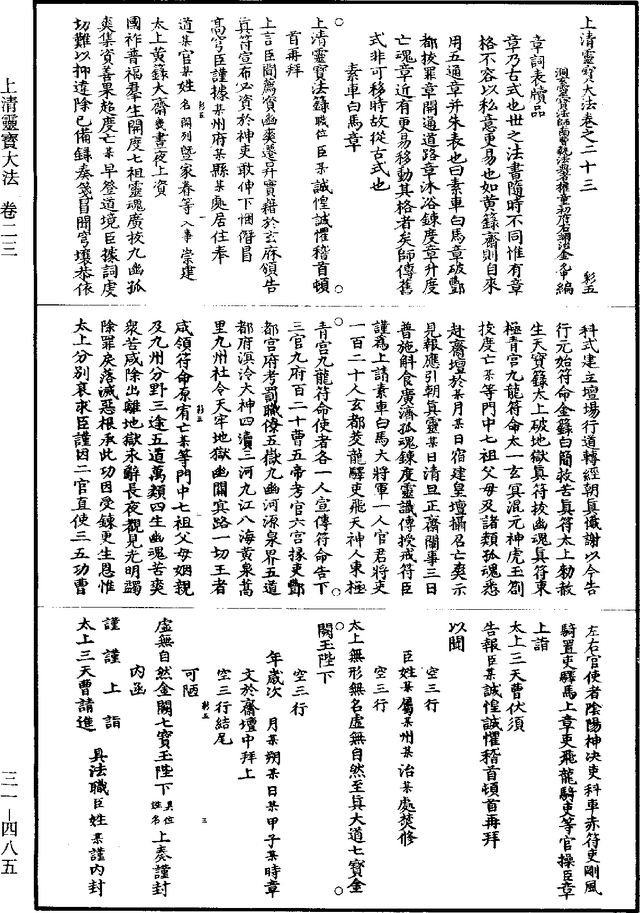 上清靈寶大法卷之二十三
洞玄靈寶法師南曹執法典者權童初府右翊治金允中編 彩五
章詞表牘品
章乃古式也世之法書隨時不同惟有章
格不容以私意更易也如黃籙齋則自來
用五通章并朱表也曰素車白馬章破酆
都拔罪章開通道路章沐浴鍊度章升度
亡魂章近有更易移動其格者矣師傳舊
式非可移時故從古式也
素車白馬章
上清靈寶法籙職位臣某誠惶誠懼稽首頓
首再拜
上言臣聞薦資幽爽遷昇實藉於玄府領告
真符宣布必資於神吏敢伸下悃僭冒
高穹臣謹據某州府某縣某處居住奉
道某官某姓名開列暨家眷等入事崇建
太上黃籙大齋幾晝夜上資
國祚普福羣生開度七祖靈魂廣拔九幽孤
爽集資善果超度亡某早登道境臣據詞虔
切難以抑違除已備錄奏箋冒聞穹壤恭依
科式建立壇場行道轉經朝真懺謝以今告
行元始符命金籙白簡救苦真符太上勅赦
生天寶籙太上破地獄真符拔幽魂真符東
極青宮九龍符命太一玄冥混元神虎玉劄
拔度亡某等門中七祖父母及諸類孤魂悉
赴齋壇於某月某日宿建皇壇攝召亡爽示
見報應引朝真靈某日清旦正齋關事三日
普施斛食廣濟孤魂鍊度靈識傳授戒符臣
謹爲上請素車白馬大將軍一人官君將吏
一百二十人玄都茭龍驛吏飛天神人東極
青宮九龍符命使者各一人宣傳符命告下
三官九府百二十曹五帝考官六宮掾吏酆
都宮府考罰職僚五嶽九幽河源泉界五道
都府溟泠大神四瀆三河九江八海黃泉萬
里九州社令天牢地獄幽關冥路一切主者
咸領符命原宥亡某等門中七祖父母姻親
及九州分野三途五道萬類四生幽魂苦爽
衆苦咸除出離地獄永辭長夜觀見光明蠲
除罪戾落滅惡根承此功因受鍊更生恩惟
太上分別哀求臣謹因二官直使三五功曹
左右官使者陰陽神決吏科車赤符吏剛風
騎置吏驛馬上章吏飛龍騎吏等官操臣章
上詣
太上三天曹伏須
告報臣某誠惶誠懼稽首頓首再拜
以聞
空三行
臣姓某屬某州某治某處焚修
空三行
太上無形無名虛無自然至真大道七寶金
闕玉陛下
空三行
年歲次 月某朔某日某甲子某時章
文於齋壇中拜上
空三行結尾
可陋
虛無自然金闕七寶玉陛下具位姓名上奏謹封
内函
謹謹上詣 具法職臣姓某謹内封
太上三天曹請進
上清靈寶大法 卷二三
三一－四八五